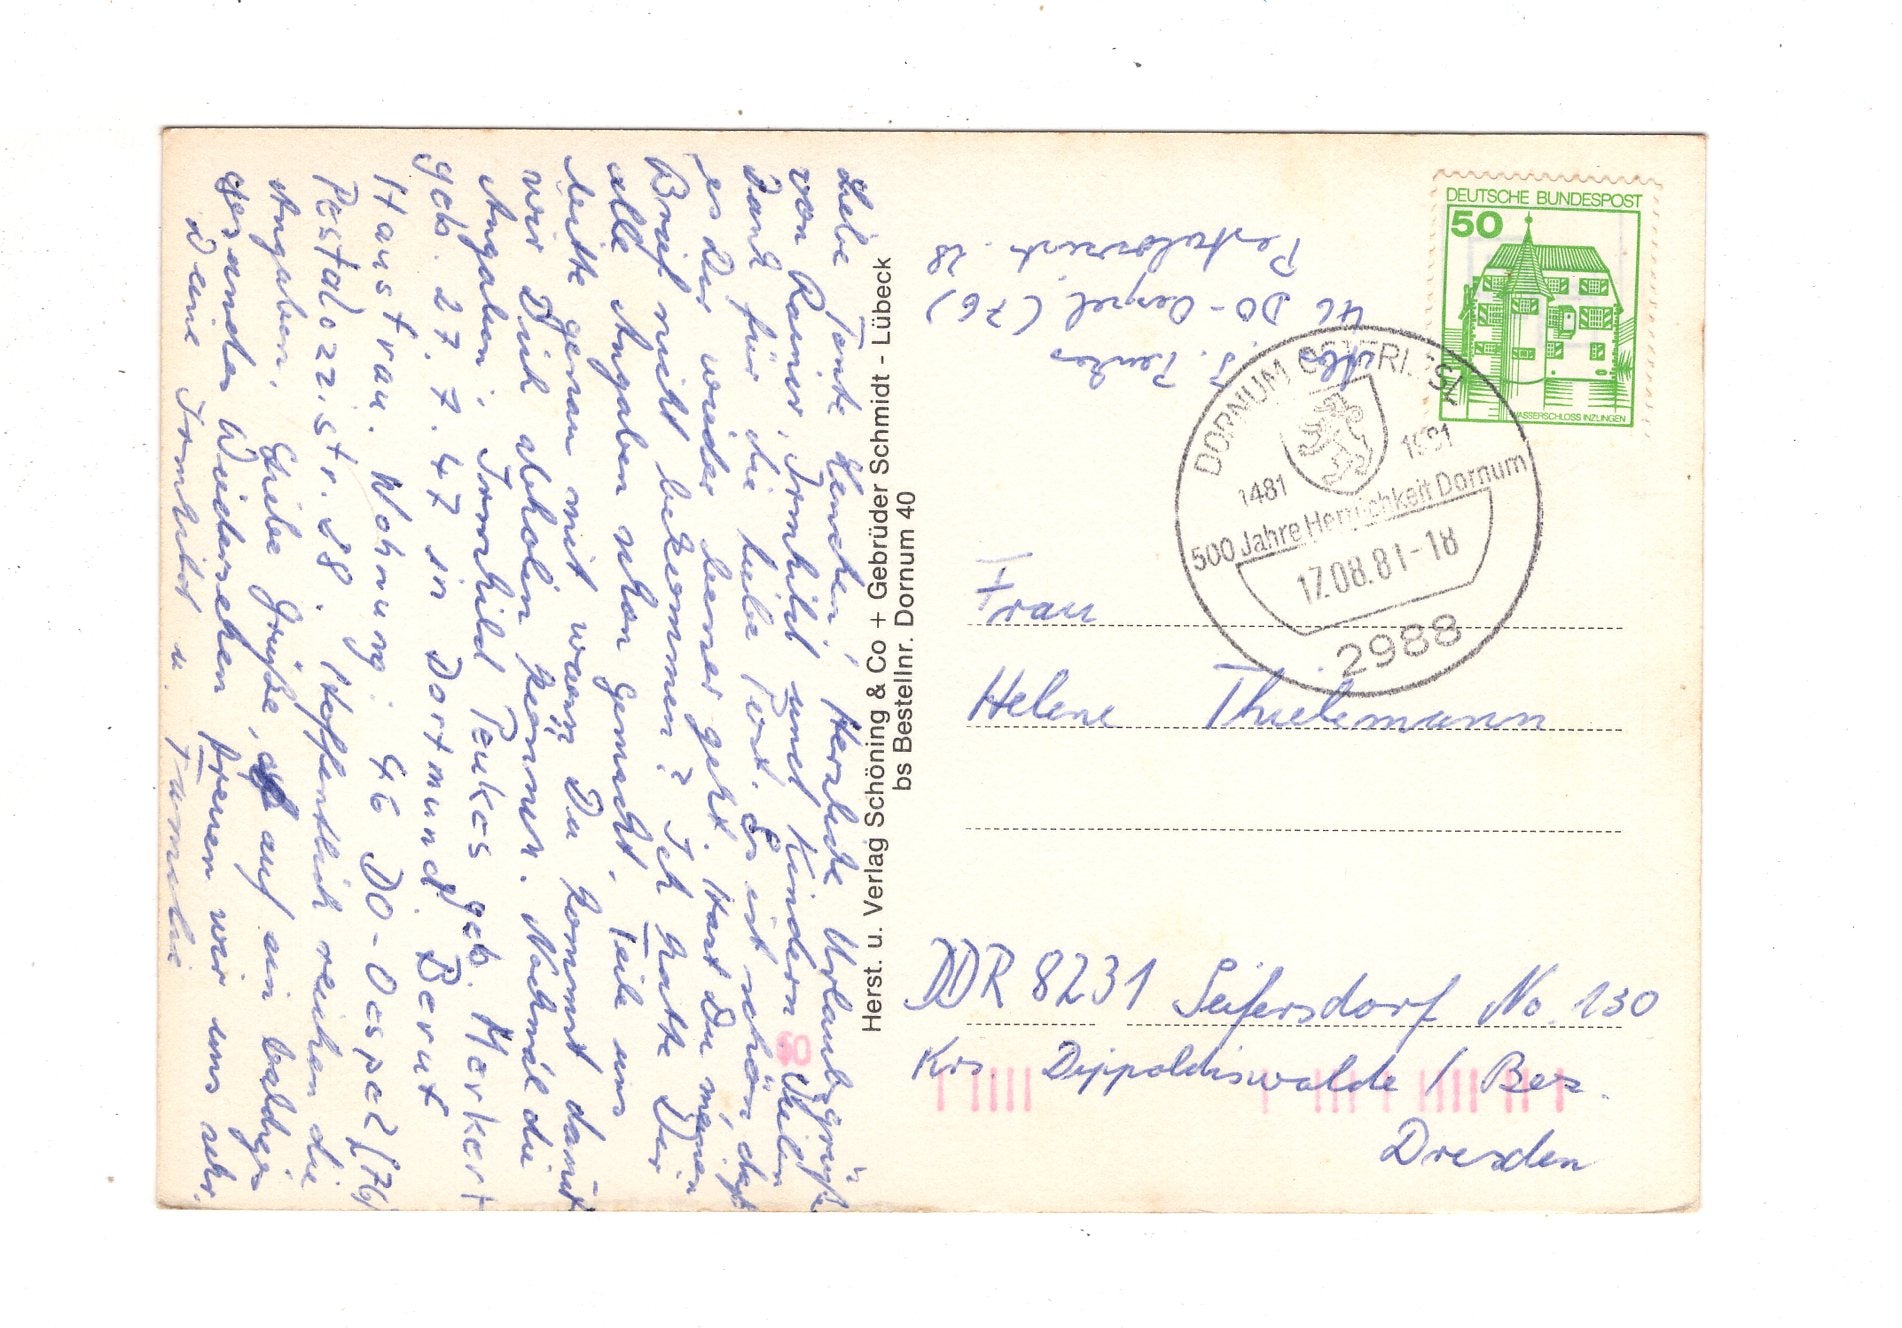 Liebe Tante Lenchen, Herzliche Urlaubsgrüße
von Rainer, Irmhild und Kindern. Vielen
Dank für die liebe Post. Es ist schön daß
es Dir wieder besser geht. Hast Du meinen
Brief nicht bekommen? Ich hatte Dir
alle Angaben schon gemacht. Teile uns
bitte genau mit wann Du kommst damit
wir Dich abholen können. Nochmal die
Angaben: Irmhild Penkes geb. Markert
geb. 27.7.47 in Dortmund Beruf
Hausfrau. Wohnung: 46 DO-Oespel (76)
Pestalozzistr. 28. Hoffentlich reichen die
Angaben. Liebe Grüße, auf ein baldiges
gesundes Wiedersehen freuen wir uns sehr.
Deine Irmhild u. Familie
Herst. u. Verlag Schöning & Co + Gebrüder Schmidt - Lübeck
bs Bestellnr. Dornum 40
Abs. J. Penkes
46 DO-Oespel (76)
Pestalozzistr. 28
DEUTSCHE BUNDESPOST
50
WASSERSCHLOSS INZLINGEN
DORNUM OSTFRIESL
1481 1981
500 Jahre Herrlichkeit Dornum
17.08.81-18
2988
Frau
Helene Thielemann
DDR 8231 Seifersdorf No. 130
Krs. Dippoldiswalde / Bez.
Dresden